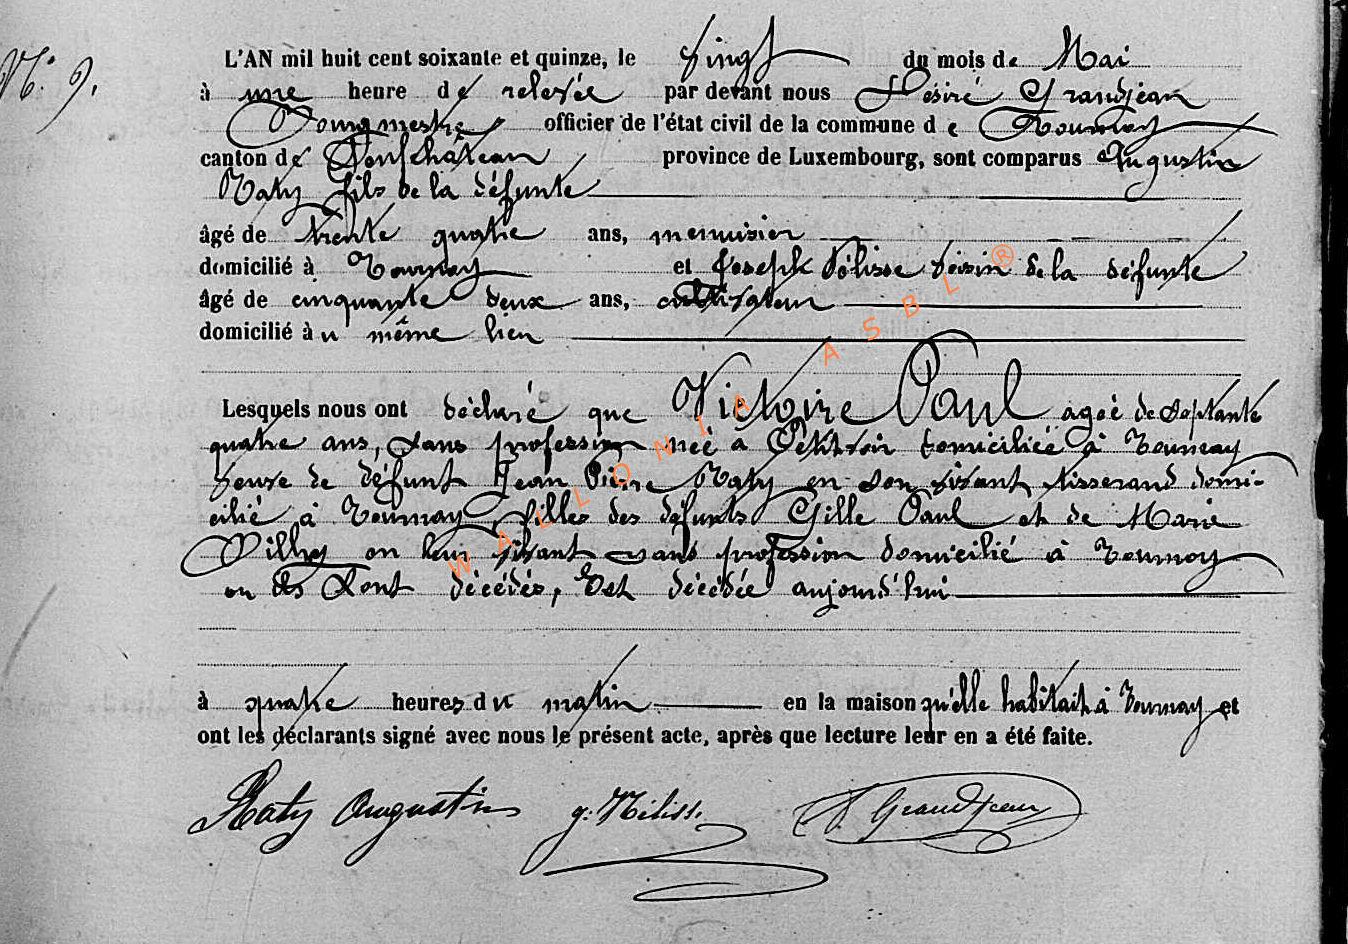 N° 9.
L'AN mil huit cent soixante et quinze, le vingt du mois de Mai
à une heure de relevée par devant nous Désiré Grandjean
Bourgmestre officier de l'état civil de la commune de Tournay
canton de Neufchâteau province de Luxembourg, sont comparus Augustin
Raty fils de la défunte
âgé de trente quatre ans, menuisier
domicilié à Tournay et Joseph voisin de la défunte
âgé de cinquante deux ans, cultivateur
domicilié au même lieu
Lesquels nous ont déclaré que Victoire Paul ageé de Septante
quatre ans, Sans profession neé à Petitvoir domiciliée à Tournay
veuve de défunt Jean Pierre Raty en son vivant tisserand domi-
cilié à Tournay filles des défunts Gille Paul et de Marie
en leur vivant sans profession domicilié à Tournay
ou ils Sont décédés, Est décédée aujourd'hui
à quatre heures du matin en la maison qu'elle habitait à Tournay et
ont les déclarants signé avec nous le présent acte, après que lecture leur en a été faite.
Raty Augustin D. Grandjean
WALLONIA ASBL ®